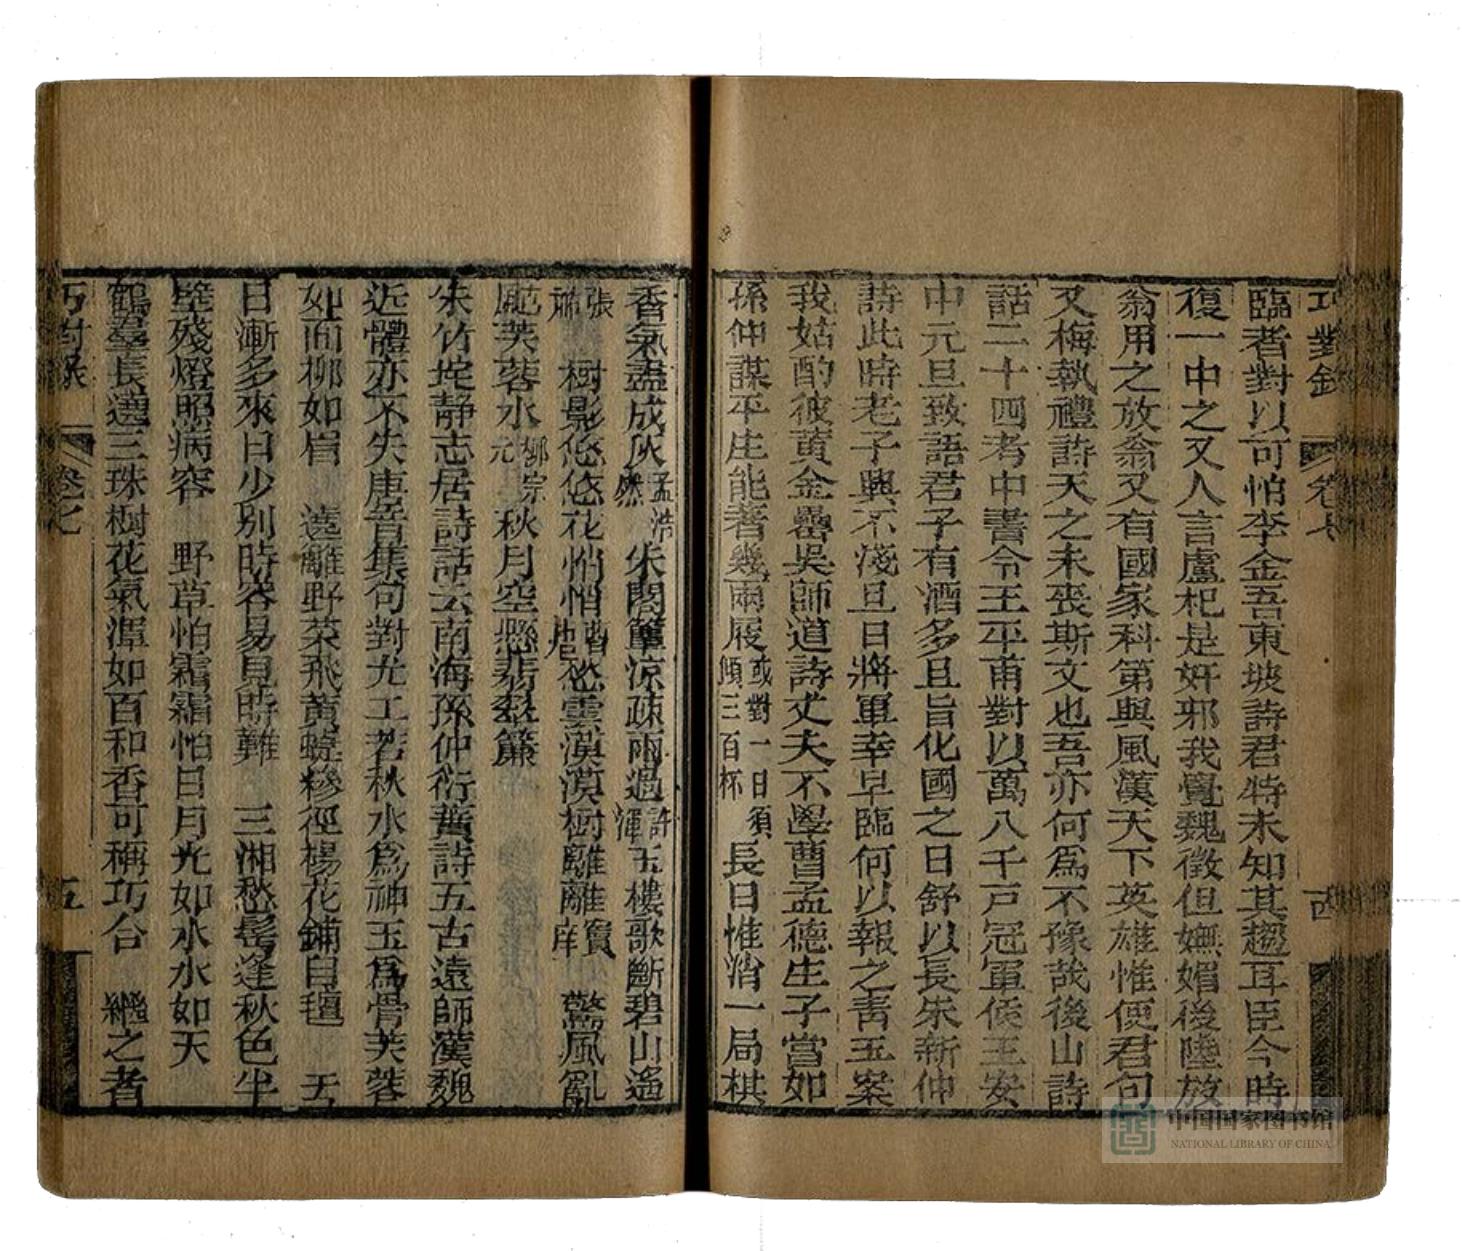 巧對錄 卷七 四
臨者對以可怕李金吾東坡詩君特未知其趣耳臣今時
復一中之又人言盧杞是奸邪我覺魏徵但嫵媚後陸放
翁用之放翁又有國家科第與風漢天下英雄惟使君句
又梅執禮詩天之未喪斯文也吾亦何爲不豫哉後山詩
話二十四考中書令王平甫對以萬八千戸冠軍侯王安
中元旦致語君子有酒多且旨化國之日舒以長朱新仲
詩此時老子興不淺旦日將軍幸早臨何以報之靑玉案
我姑酌彼黃金罍吳師道詩丈夫不學曹孟德生子當如
孫仲謀平生能著幾兩屐或對一日須傾三百杯長日惟消一局棋
香氣盡成灰孟浩然 朱閣簟凉疎雨過許渾玉樓歌斷碧山遙
張祜 樹影悠悠花悄悄曹唐愁雲漠漠樹離離竇庠 驚風亂
颭芙蓉水柳宗元 秋月空懸翡翠簾
朱竹垞靜志居詩話云南海孫仲衍蕡詩五古遠師漢魏
近體亦不失唐音集句對尤工若秋水爲神玉爲骨芙蓉
如面柳如眉 遠籬野菜飛黃蜨糝徑楊花鋪白氊 去
日漸多來日少別時容易見時難 三湘愁鬢逢秋色半
壁殘燈照病容 野草怕霜霜怕日月光如水水如天
鶴羣長遶三珠樹花氣渾如百和香可稱巧合 繼之者
巧對錄 卷之七 五
中国国家图书馆
NATIONAL LIBRARY OF CHINA